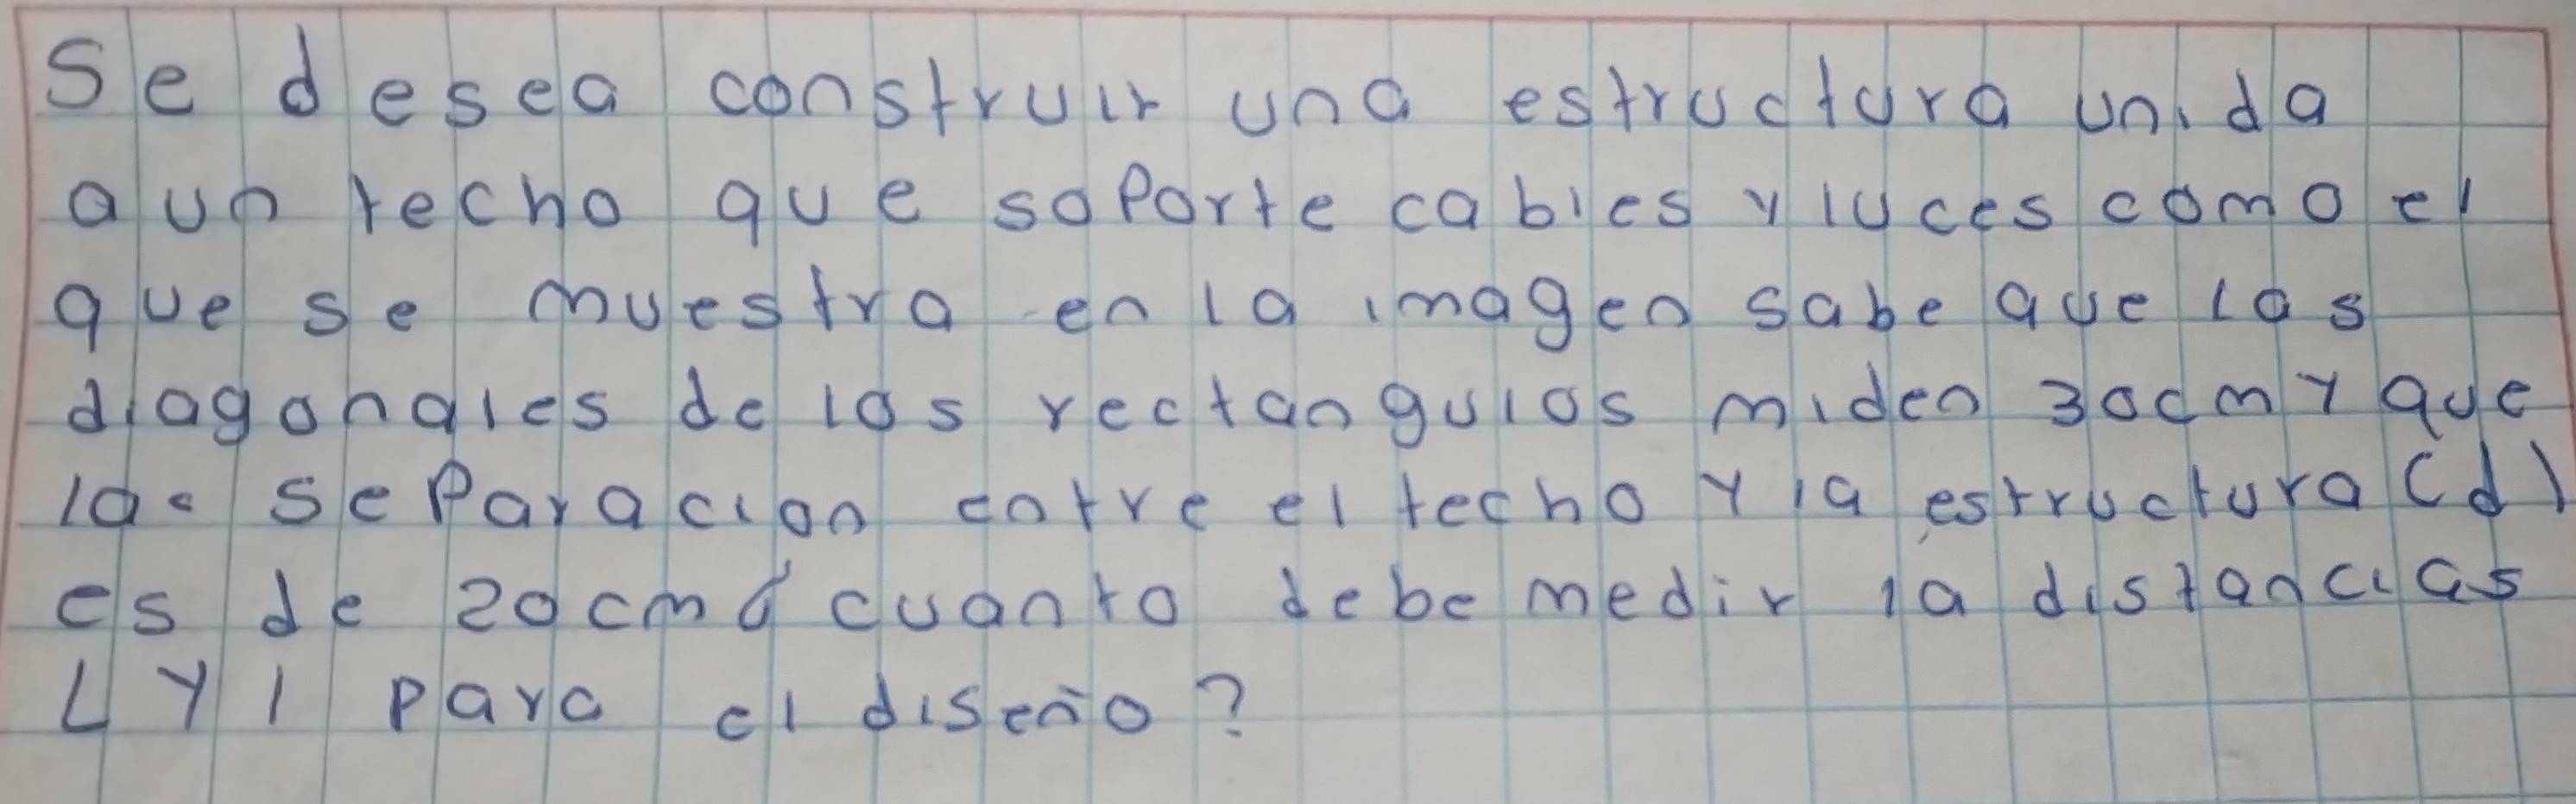 Se desea construir una estructura unida
a un techo que soporte cables y luces como el
que se muestra en la imagen sabe que las
diagonales de los rectangulos miden 30cm y que
la separacion entre el techo y la estructura (d)
es de 20cm ¿cuanto debe medir la distancias
L y l para el diseño?